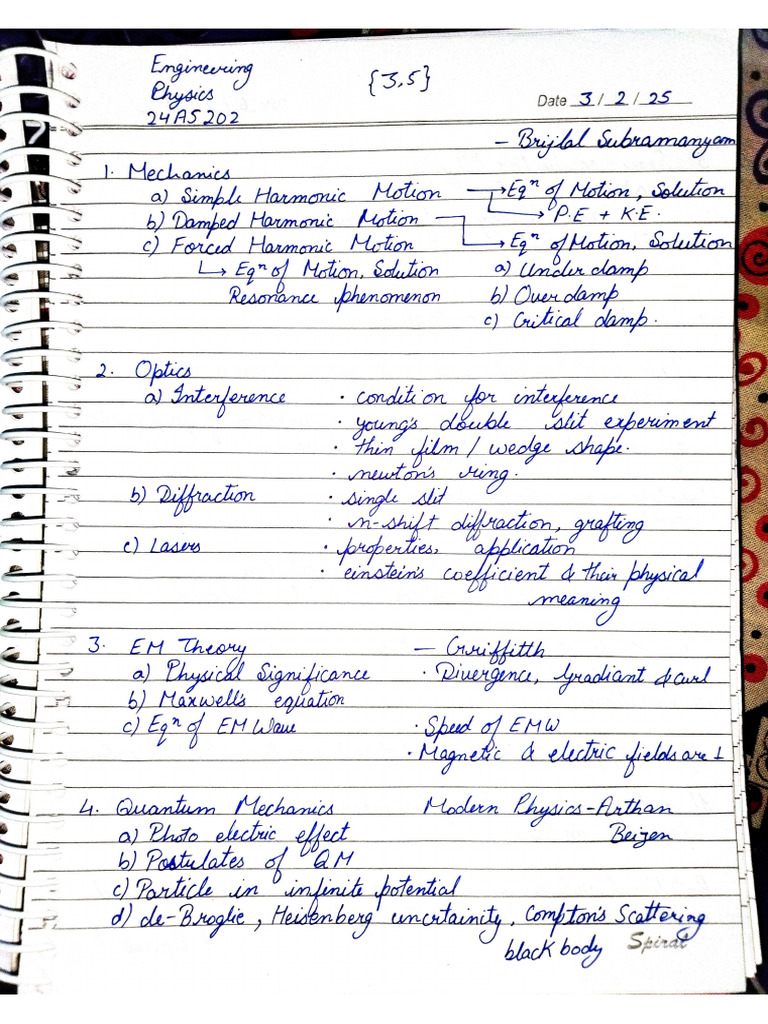 Engineering
Physics
24AS202
{3,5}
Date 3 / 2 / 25
7
- Brijlal Subramanyam
1. Mechanics
a) Simple Harmonic Motion → Eqⁿ of Motion, Solution
→ P.E + K.E.
b) Damped Harmonic Motion
c) Forced Harmonic Motion → Eqⁿ of Motion, Solution
↳ Eqⁿ of Motion, Solution a) Under damp
Resonance phenomenon b) Over damp
c) Critical damp.
2. Optics
a) Interference · condition for interference
· young's double slit experiment
· thin film / wedge shape.
· newton's ring.
b) Diffraction · single slit
· n-shift diffraction, grafting
c) Lasers · properties, application
· einstein's coefficient & their physical
meaning
3. EM Theory - Grriffitth
a) Physical Significance · Divergence, Gradiant & curl
b) Maxwell's equation
c) Eqⁿ of EM Wave · Speed of EMW
· Magnetic & electric fields are ⊥
4. Quantum Mechanics Modern Physics - Arthan
a) Photo electric effect Beizen
b) Postulates of QM
c) Particle in infinite potential
d) de-Broglie, Heisenberg uncrtainity, Compton's Scattering
black body Spiral